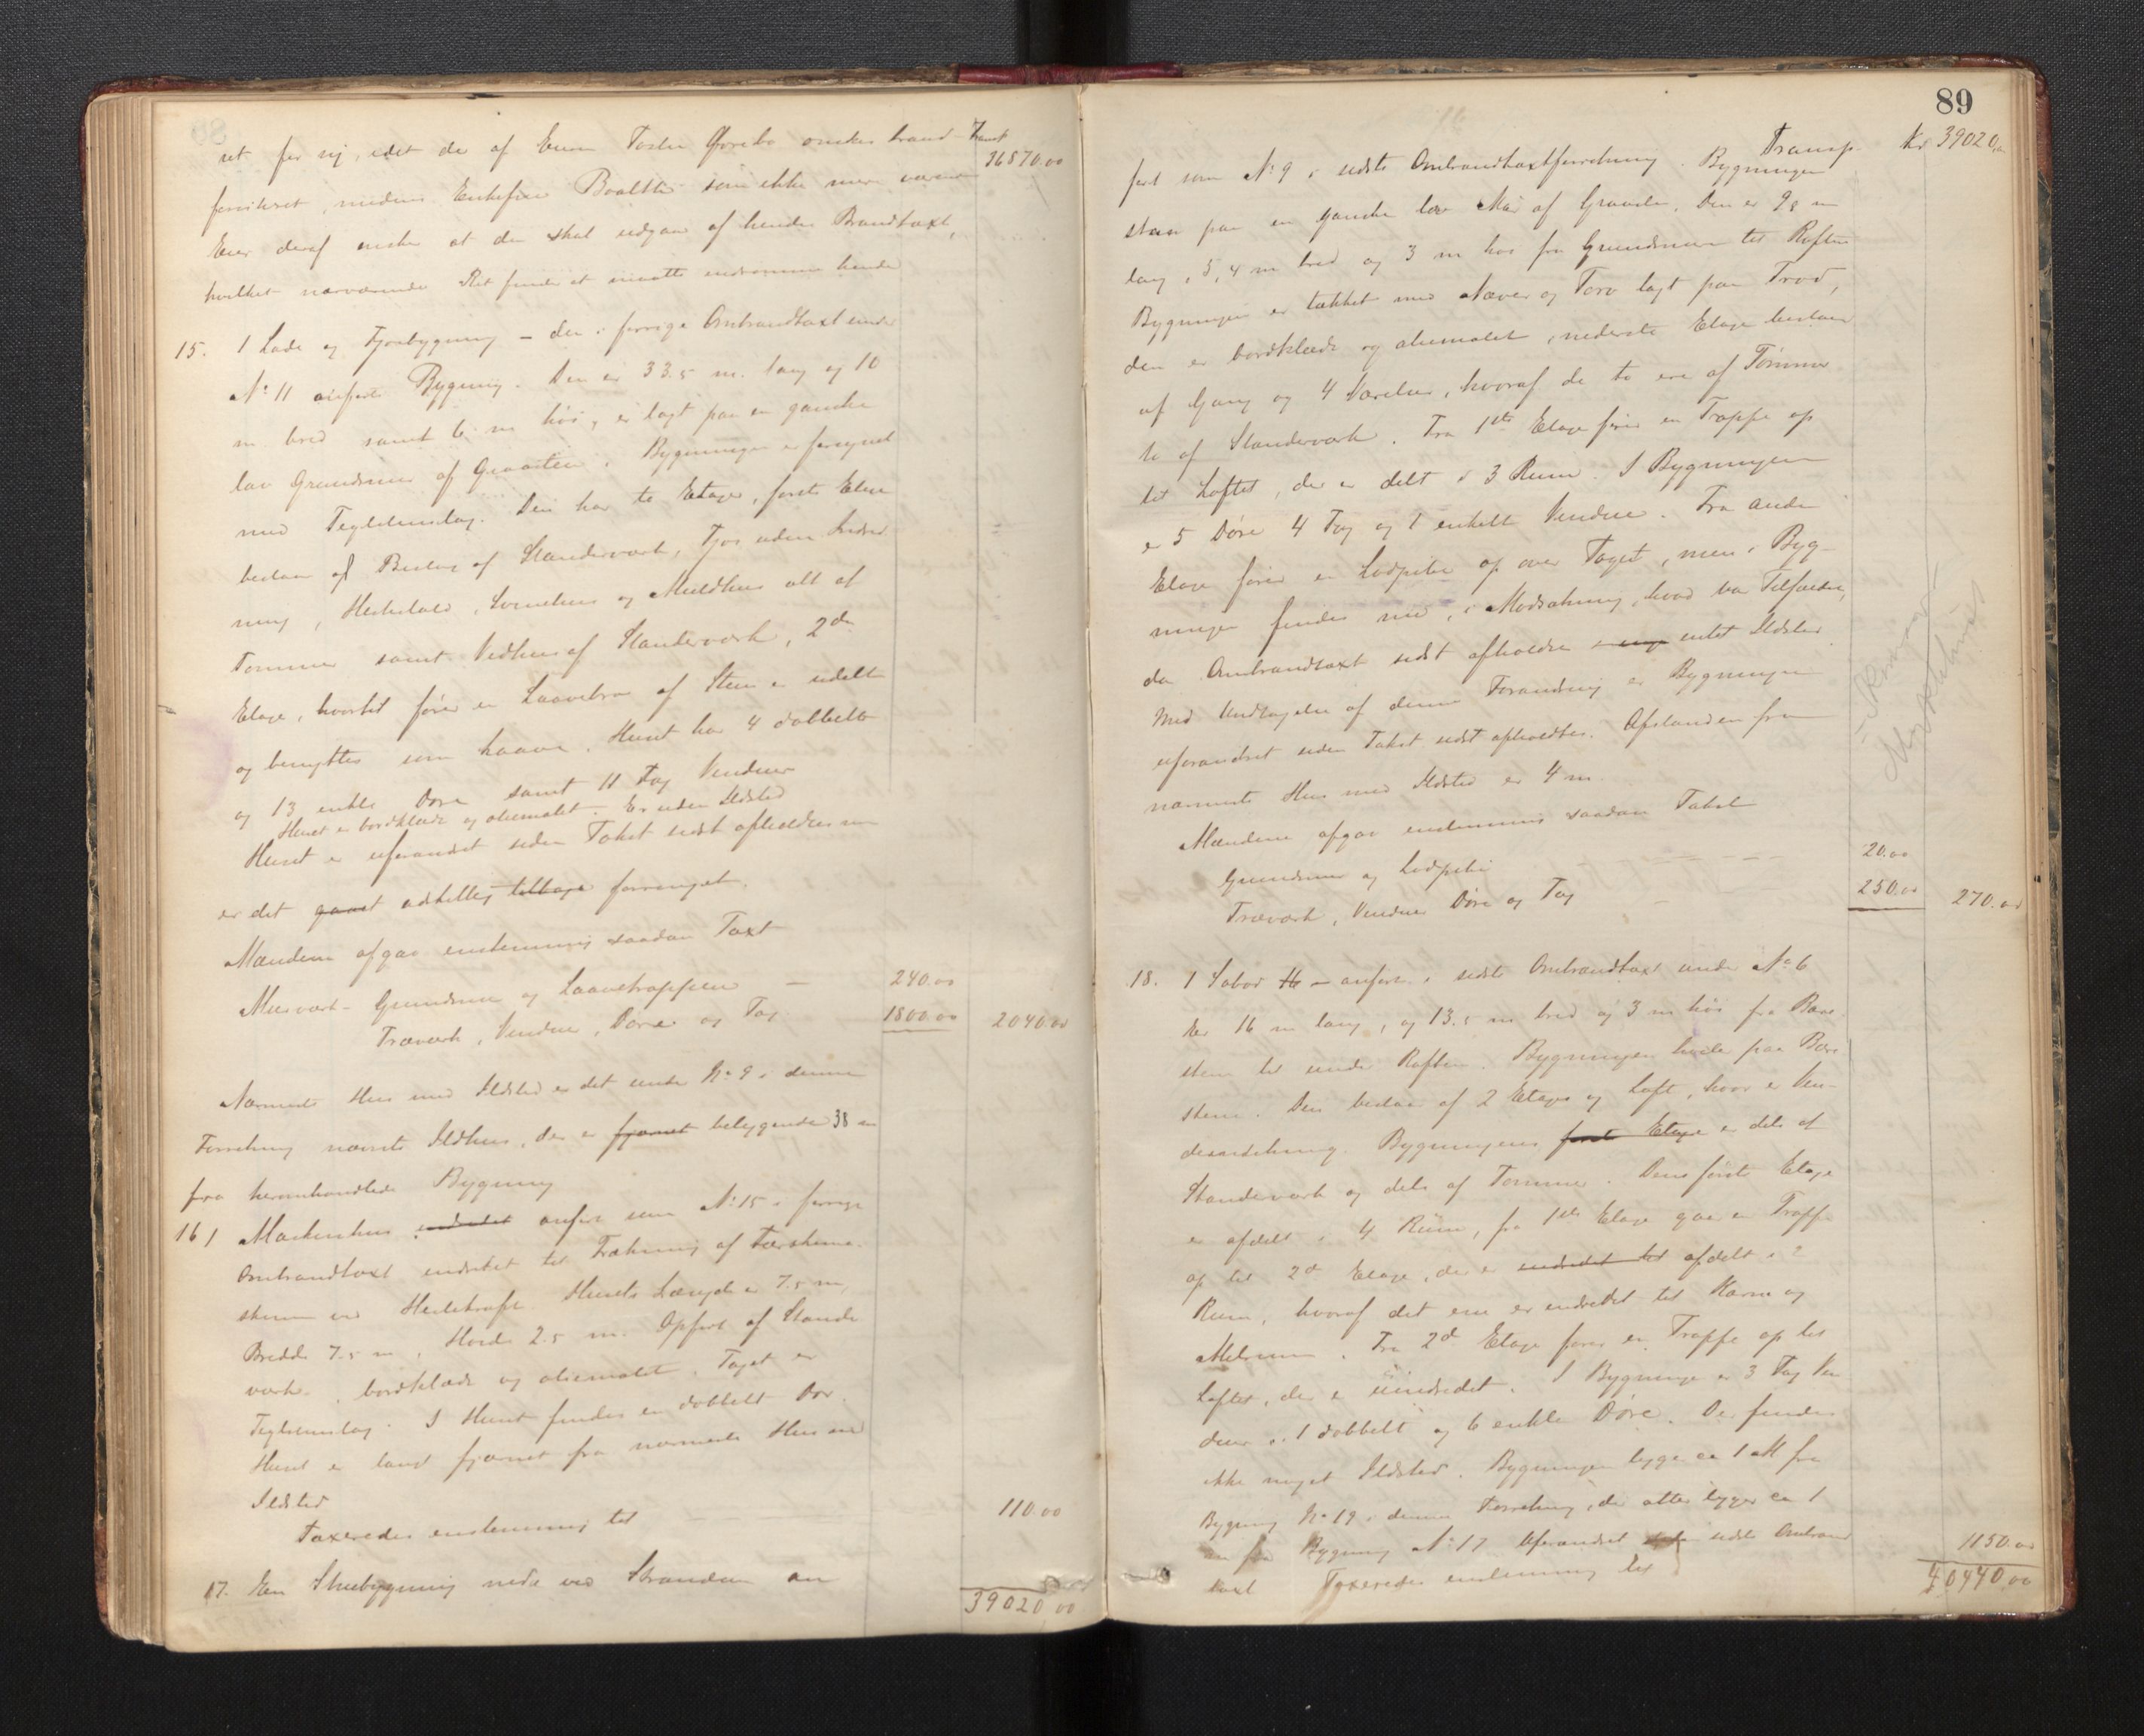 Transp
36870.00
ret for sig, idet de af Eieren Torlei Øvrebø ønskes brand-
forsikret, medens Enkefrue Baalth som ikke mere værende
Eier deraf ønsker at den skal udgaa af hendes Brandtaxt,
hvilket nærværende Ret finder at maatte indrømme hende
15. 1 Lade og Fjøsbygning – den i forrige Ombrandtaxt under
No 11 anførte Bygning. Den er 33.5 m. lang og 10
m bred samt 6 m høi, er lagt paa en ganske
lav Grundmur af Graasten. Bygningen er forsynet
med Teglstenstag. Den har to Etager, første Etage
bestaar af af Standerværk, Fjøs uden Indred
ning, Hestestald, og Møldhus alt af
Tømmer samt Vedhus af Standerværk, 2den
Etage, hvortil fører en Laavebro af Sten er udelt
og benyttes som Laave. Huset har 4 dobbelte
og 13 enkle Døre samt 11 Fag Vinduer
Huset er bordklædt og oliemalet. Er uden Ildsted
Huset er uforandret siden Takst sidst afholdtes men
er det forringet.
Mændene afgav enstemmig saadan Taxt
Murværk – Grundmur og Laavetrappen – 240.00
Træværk, Vinduer, Døre og Tag 1800.00 2040.00
Nærmeste Hus med Ildsted er det under No 9 i denne
Forretning nævnte Ildhus, der er fjernet beliggende 38 m
fra heromhandlede Bygning
16 1 Maskinhus indredet anført som No 15 i forrige
Ombrandtaxt indredet til Trækning af Tærskema-
skinen ved Hestekraft. Husets Længde er 7.5 m,
Bredde 7.5 m, Høide 2.5 m. Opført af Stander
værk, bordklædt og oliemalet. Taget er
Teglstenstag. I Huset findes en dobbelt Dør.
Huset er langt fjernet fra nærmeste Hus med
Ildsted
Taxeredes enstemmig til 110.00
17. En Stuebygning nede ved Stranden an
39020.00
89
Transp. Kr 39020,00
ført som No 9 i sidste Ombrandtaxtforretning. Bygningen
staar paa en ganske lav Mur af Graasten. Den er 9,8 m
lang, 5,4 m bred og 3 m høi fra Grundmuren til Raften
Bygningen er tækket med Næver og Torv lagt paa Trod,
den er bordklædt og oliemalet, nederste Etage bestaar
af Gang og 4 Værelser, hvoraf de to ere af Tømmer
to af Standerværk. Fra 1ste Etage fører en Trappe op
til Loftet, der er delt i 3 Rum. I Bygningen
er 5 Døre 4 Fag og 1 enkelt Vindue. Fra anden
Etage fører en Lodpibe op over Taget, men i Byg-
ningen findes nu, i Modsætning, hvad var Tilfældet,
da Ombrandtaxt sidst afholdtes intet Ildsted.
Med Undtagelse af denne Forandring er Bygningen
uforandret siden Takst sidst afholdtes. Afstanden fra
nærmeste Hus med Ildsted er 4 m.
Mændene afgav enstemmig saadan Takst
Grundmur og Lodpibe 20.00
Træværk, Vinduer Døre og Tag 250.00 270.00
18. 1 Stabur – anført i sidste Ombrandtaxt under No 6
Er 16 m lang, og 13.5 m bred og 3 m høi fra Bære
stene til under Raften. Bygningen hviler paa Bære
stene. Den bestaar af 2 Etager og Loft, hvor er Vin-
deindretning. Bygningens første Etage er dels af
Standerværk og dels af Tømmer. Dens første Etage
er afdelt i 4 Rum, fra 1ste Etage gaar en Trappe
op til 2den Etage, der er indredet til afdelt i 2
Rum, hvoraf det ene er indredet til Korn og
Melrum. Fra 2den Etage fører en Trappe op til
Loftet, der er uindredet. I Bygningen er 3 Fag Vin
duer, 1 dobbelt og 6 enkle Døre. Der findes
ikke noget Ildsted. Bygningen ligger ca 1 M fra
Bygning No 19 i denne Forretning, der atter ligger ca 1
m fra Bygning No 17 Uforandret siden sidste Ombrand
taxt Taxeredes enstemmig til 1150.00
40440.00